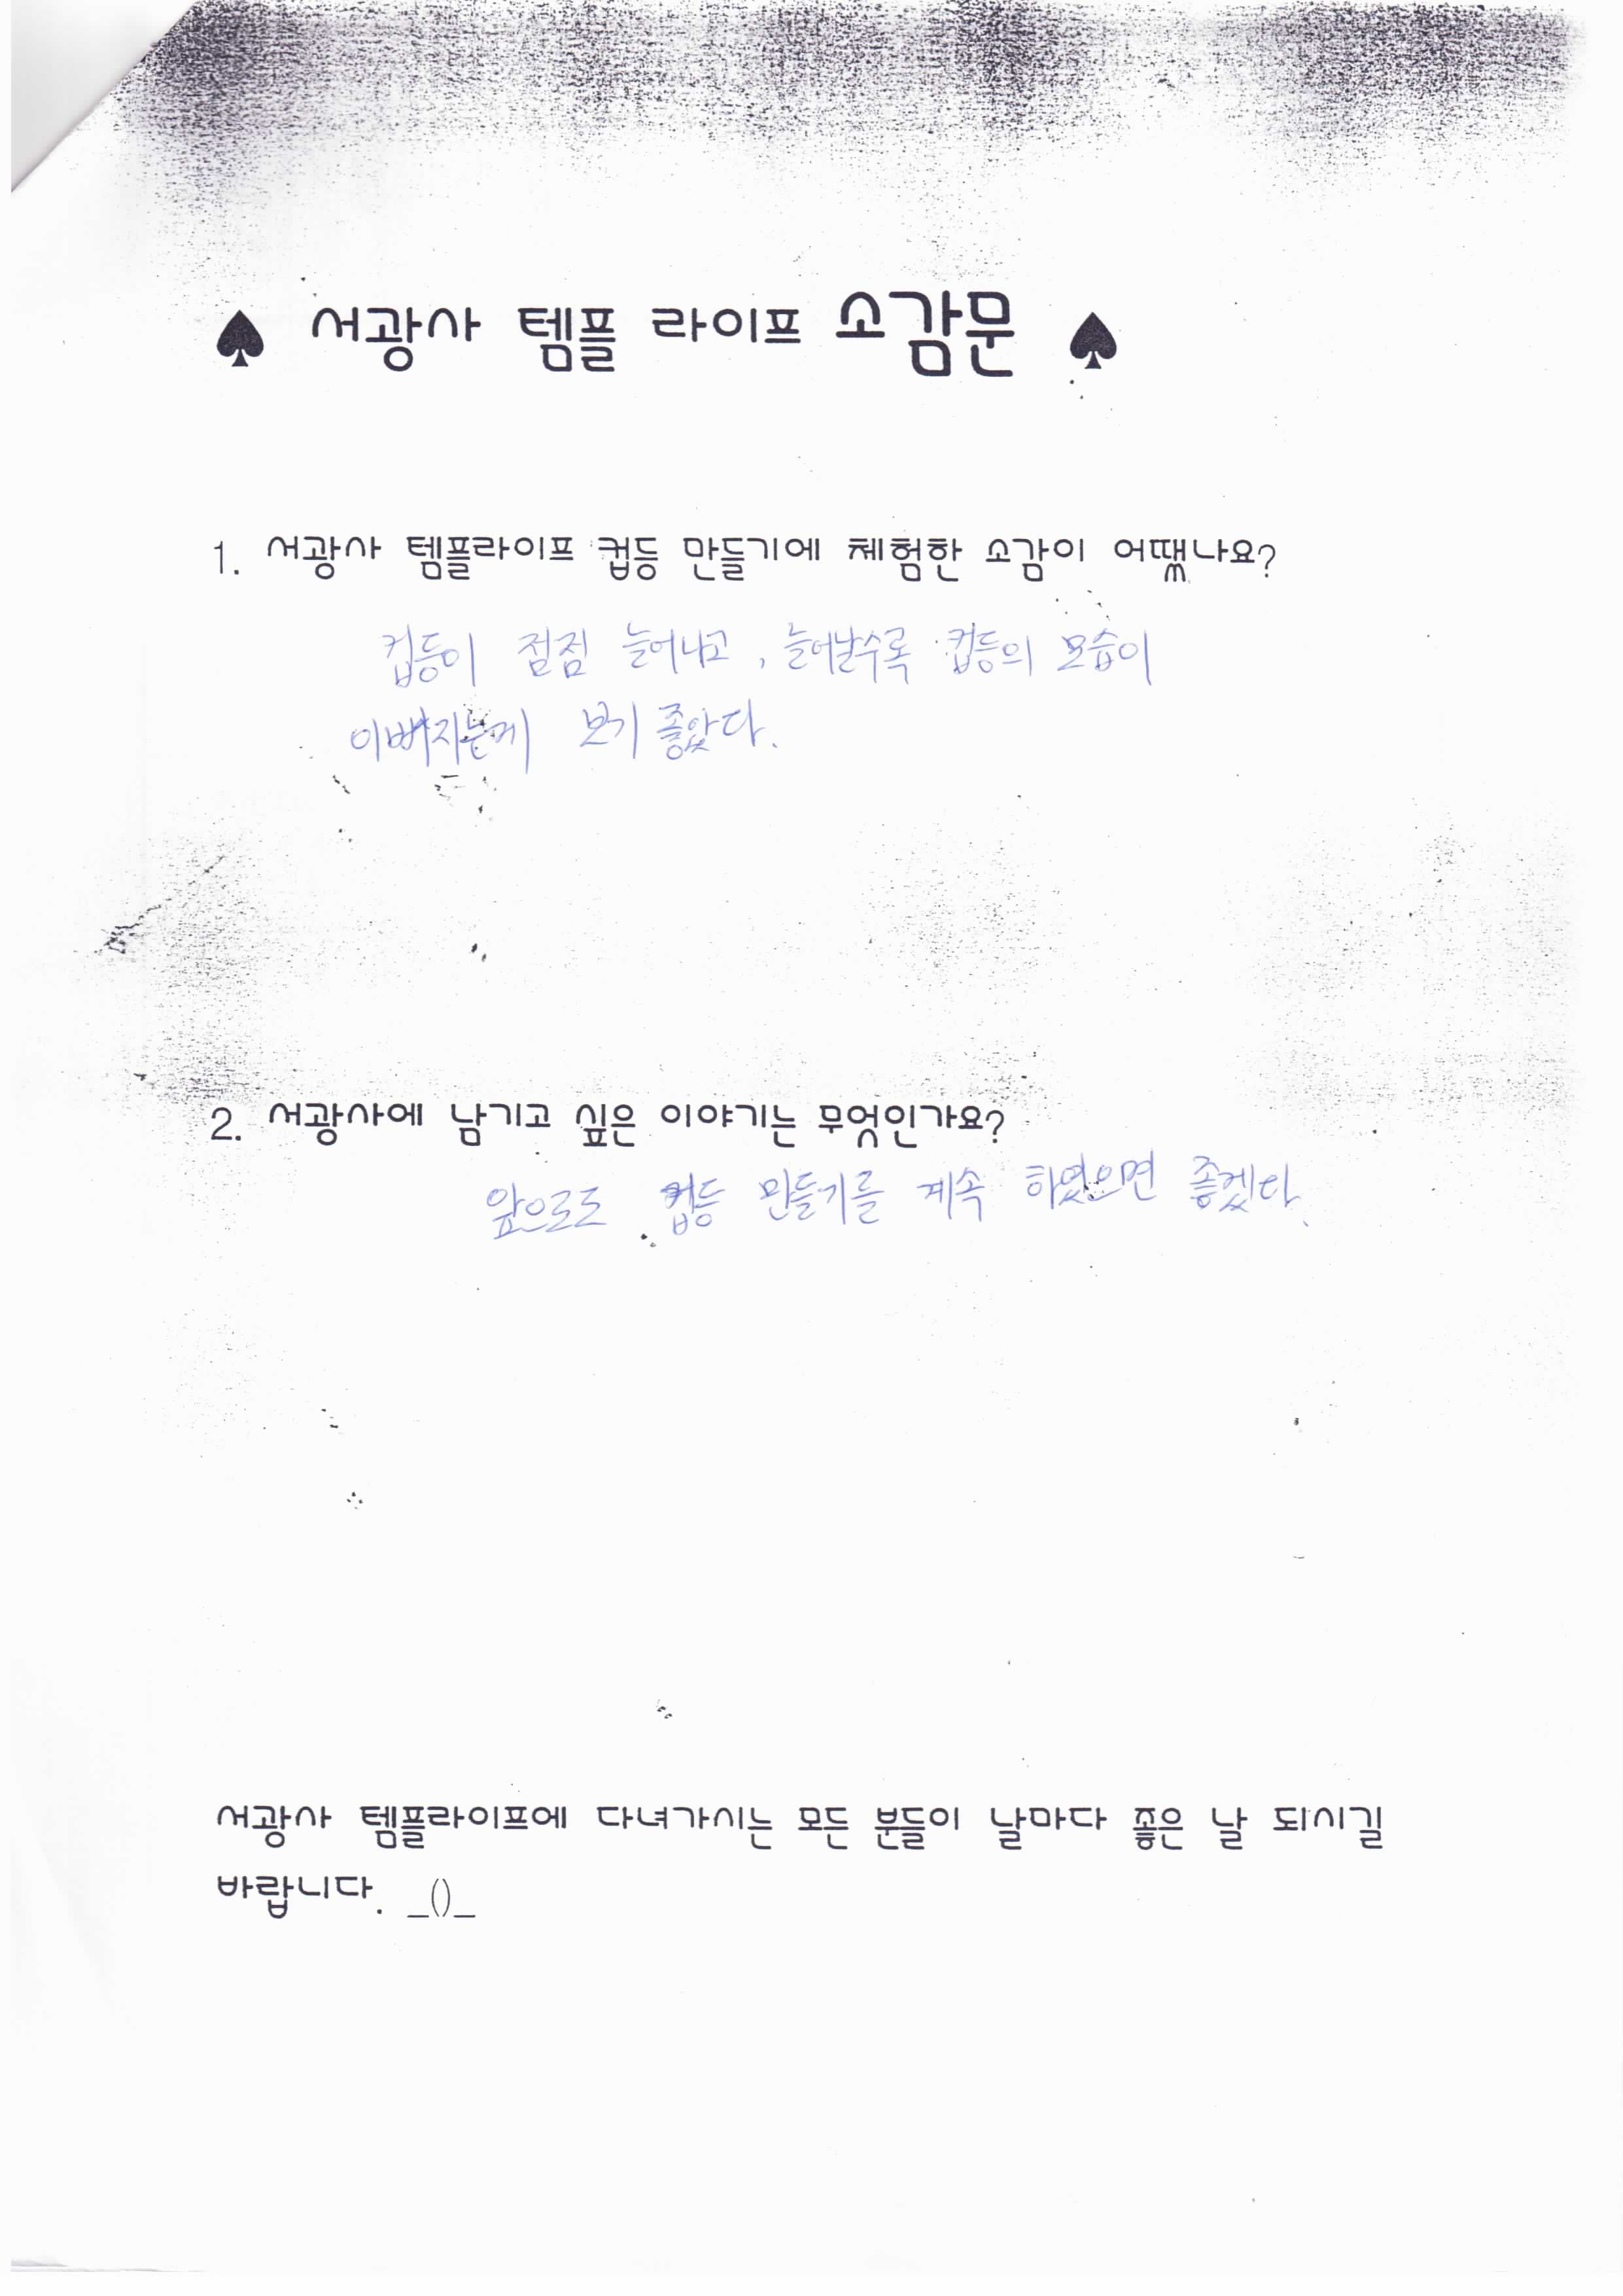 ♠ 서광사 템플 라이프 소감문 ♠
1. 서광사 템플라이프 컵등 만들기에 체험한 소감이 어땠나요?
컵등이 점점 늘어나고, 늘어날수록 컵등의 모습이
이뻐지는게 보기 좋았다.
2. 서광사에 남기고 싶은 이야기는 무엇인가요?
앞으로도 컵등 만들기를 계속 하였으면 좋겠다.
서광사 템플라이프에 다녀가시는 모든 분들이 날마다 좋은 날 되시길
바랍니다. _()_